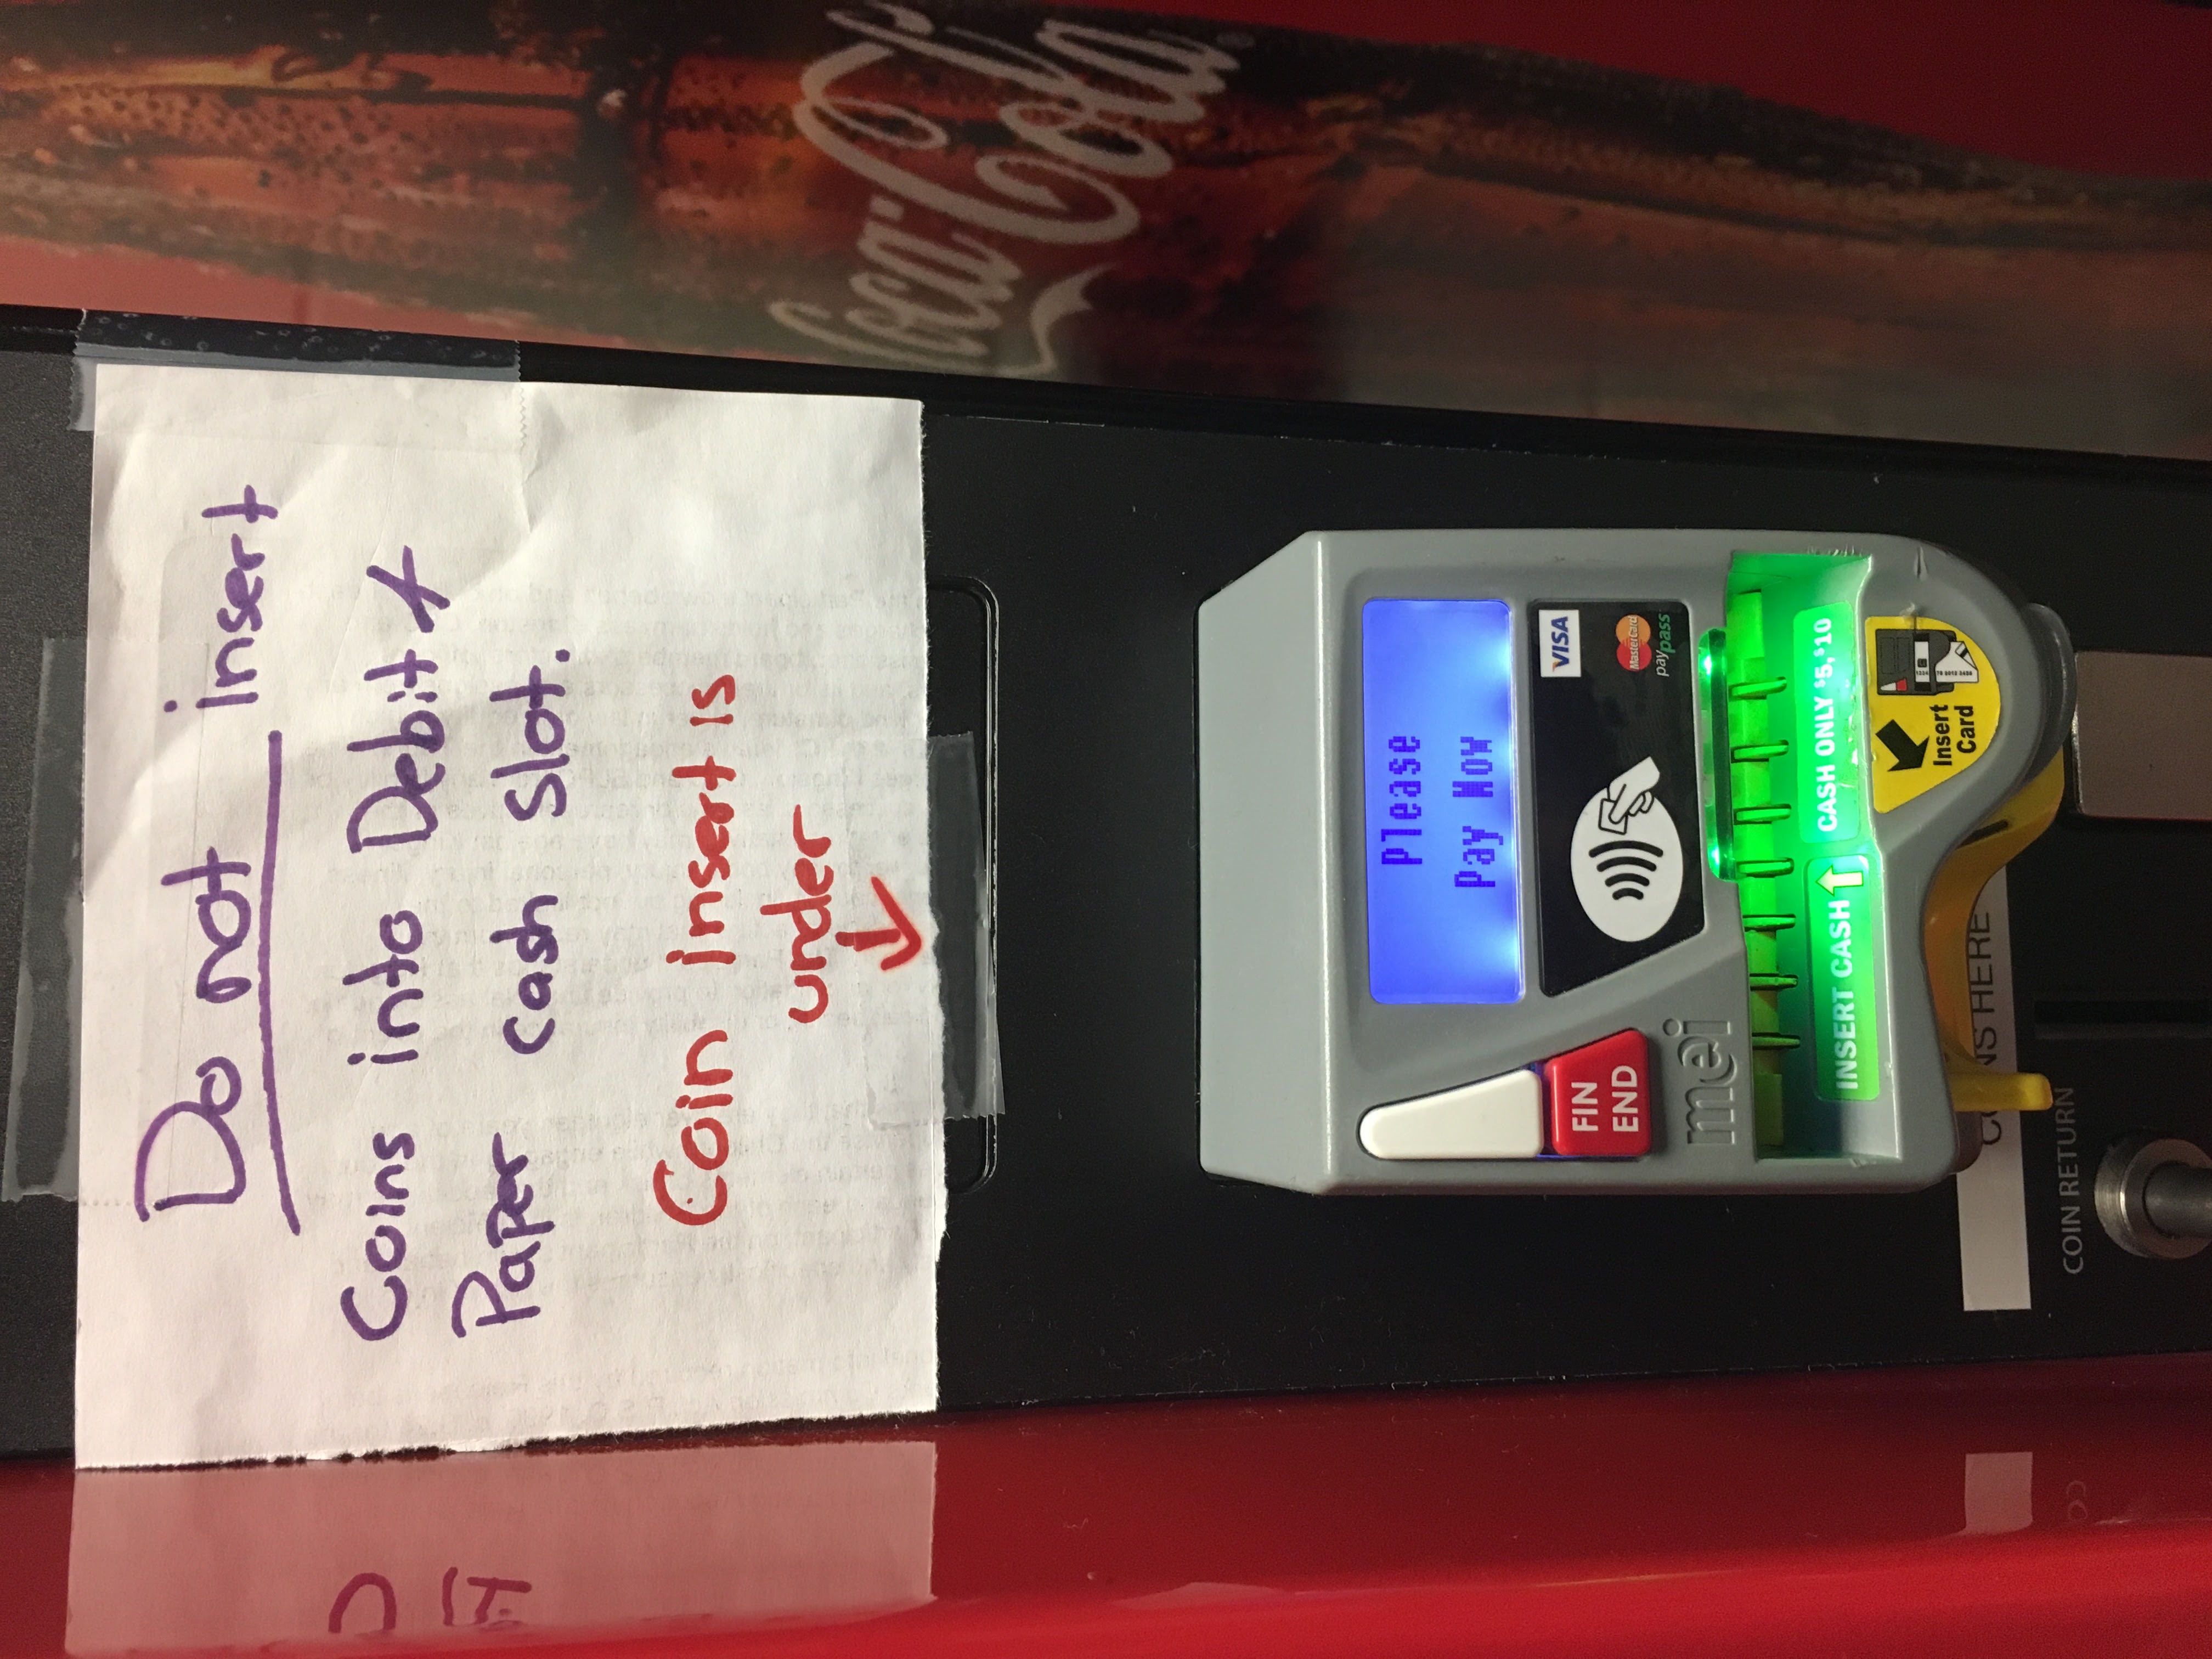 Do not insert
Coins into Debit &
Paper cash slot.
Coin insert is
under
Coca-Cola
Please
Pay Now
VISA
FIN
END
MasterCard
paypass
mei
INSERT CASH
CASH ONLY $5,$10
Insert
Card
COINS HERE
COIN RETURN